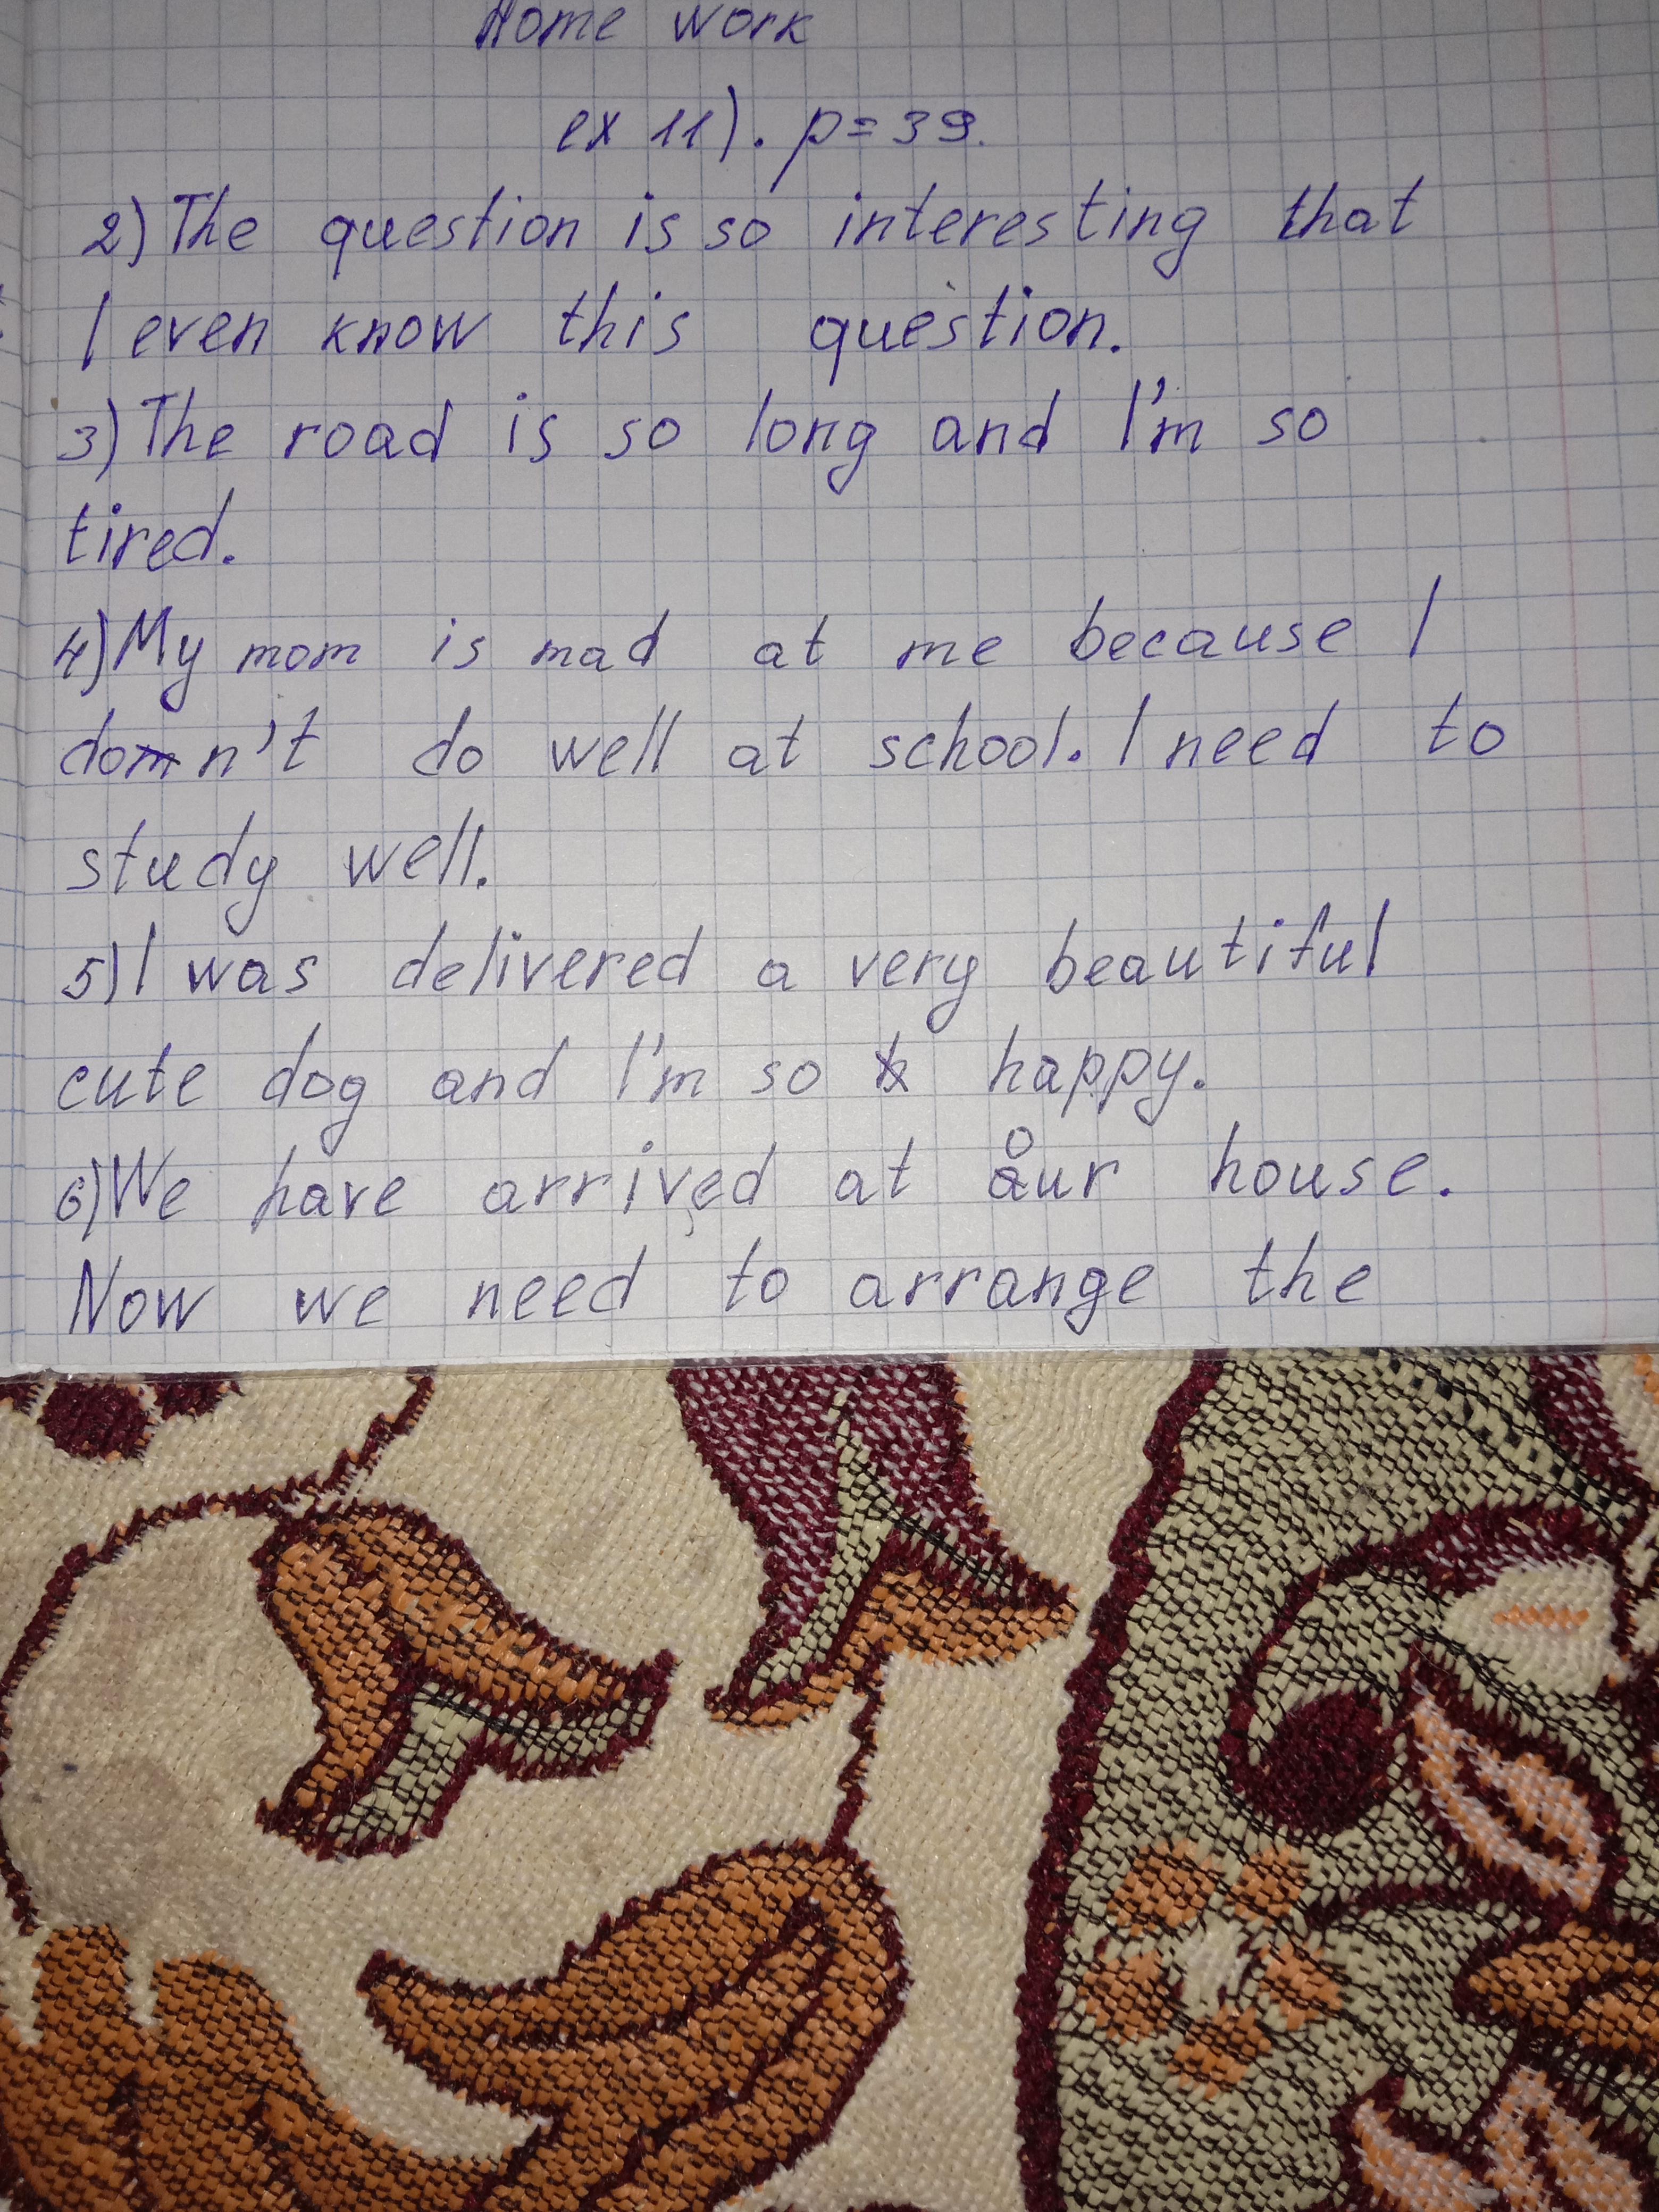 Home work
ex 11). p=39.
2) The question is so interesting that
I even know this question.
3) The road is so long and I'm so
tired.
4) My mom is mad at me because I
don't do well at school. I need to
study well.
5) I was delivered a very beautiful
cute dog and I'm so happy.
6) We have arrived at our house.
Now we need to arrange the